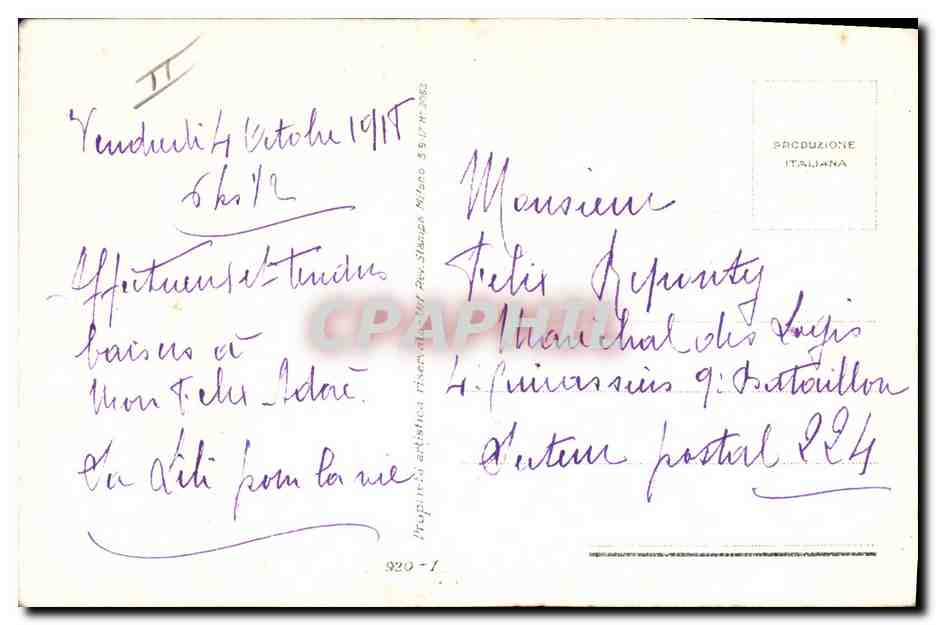 II
Vendredi 4 Octobre 1918
6 hs 1/2
Affectueux et tendres
baisers à
mon Felix Adoré.
Sa Lili pour la vie
Proprietà artistica riservata Uff. Rev. Stampa Milano 5 9 17 N° 2052
920 - 1
PRODUZIONE
ITALIANA
Monsieur
Felix
Maréchal des Logis
4e Cuirassiers 9e Bataillon
Secteur postal 224
CPAPHIL